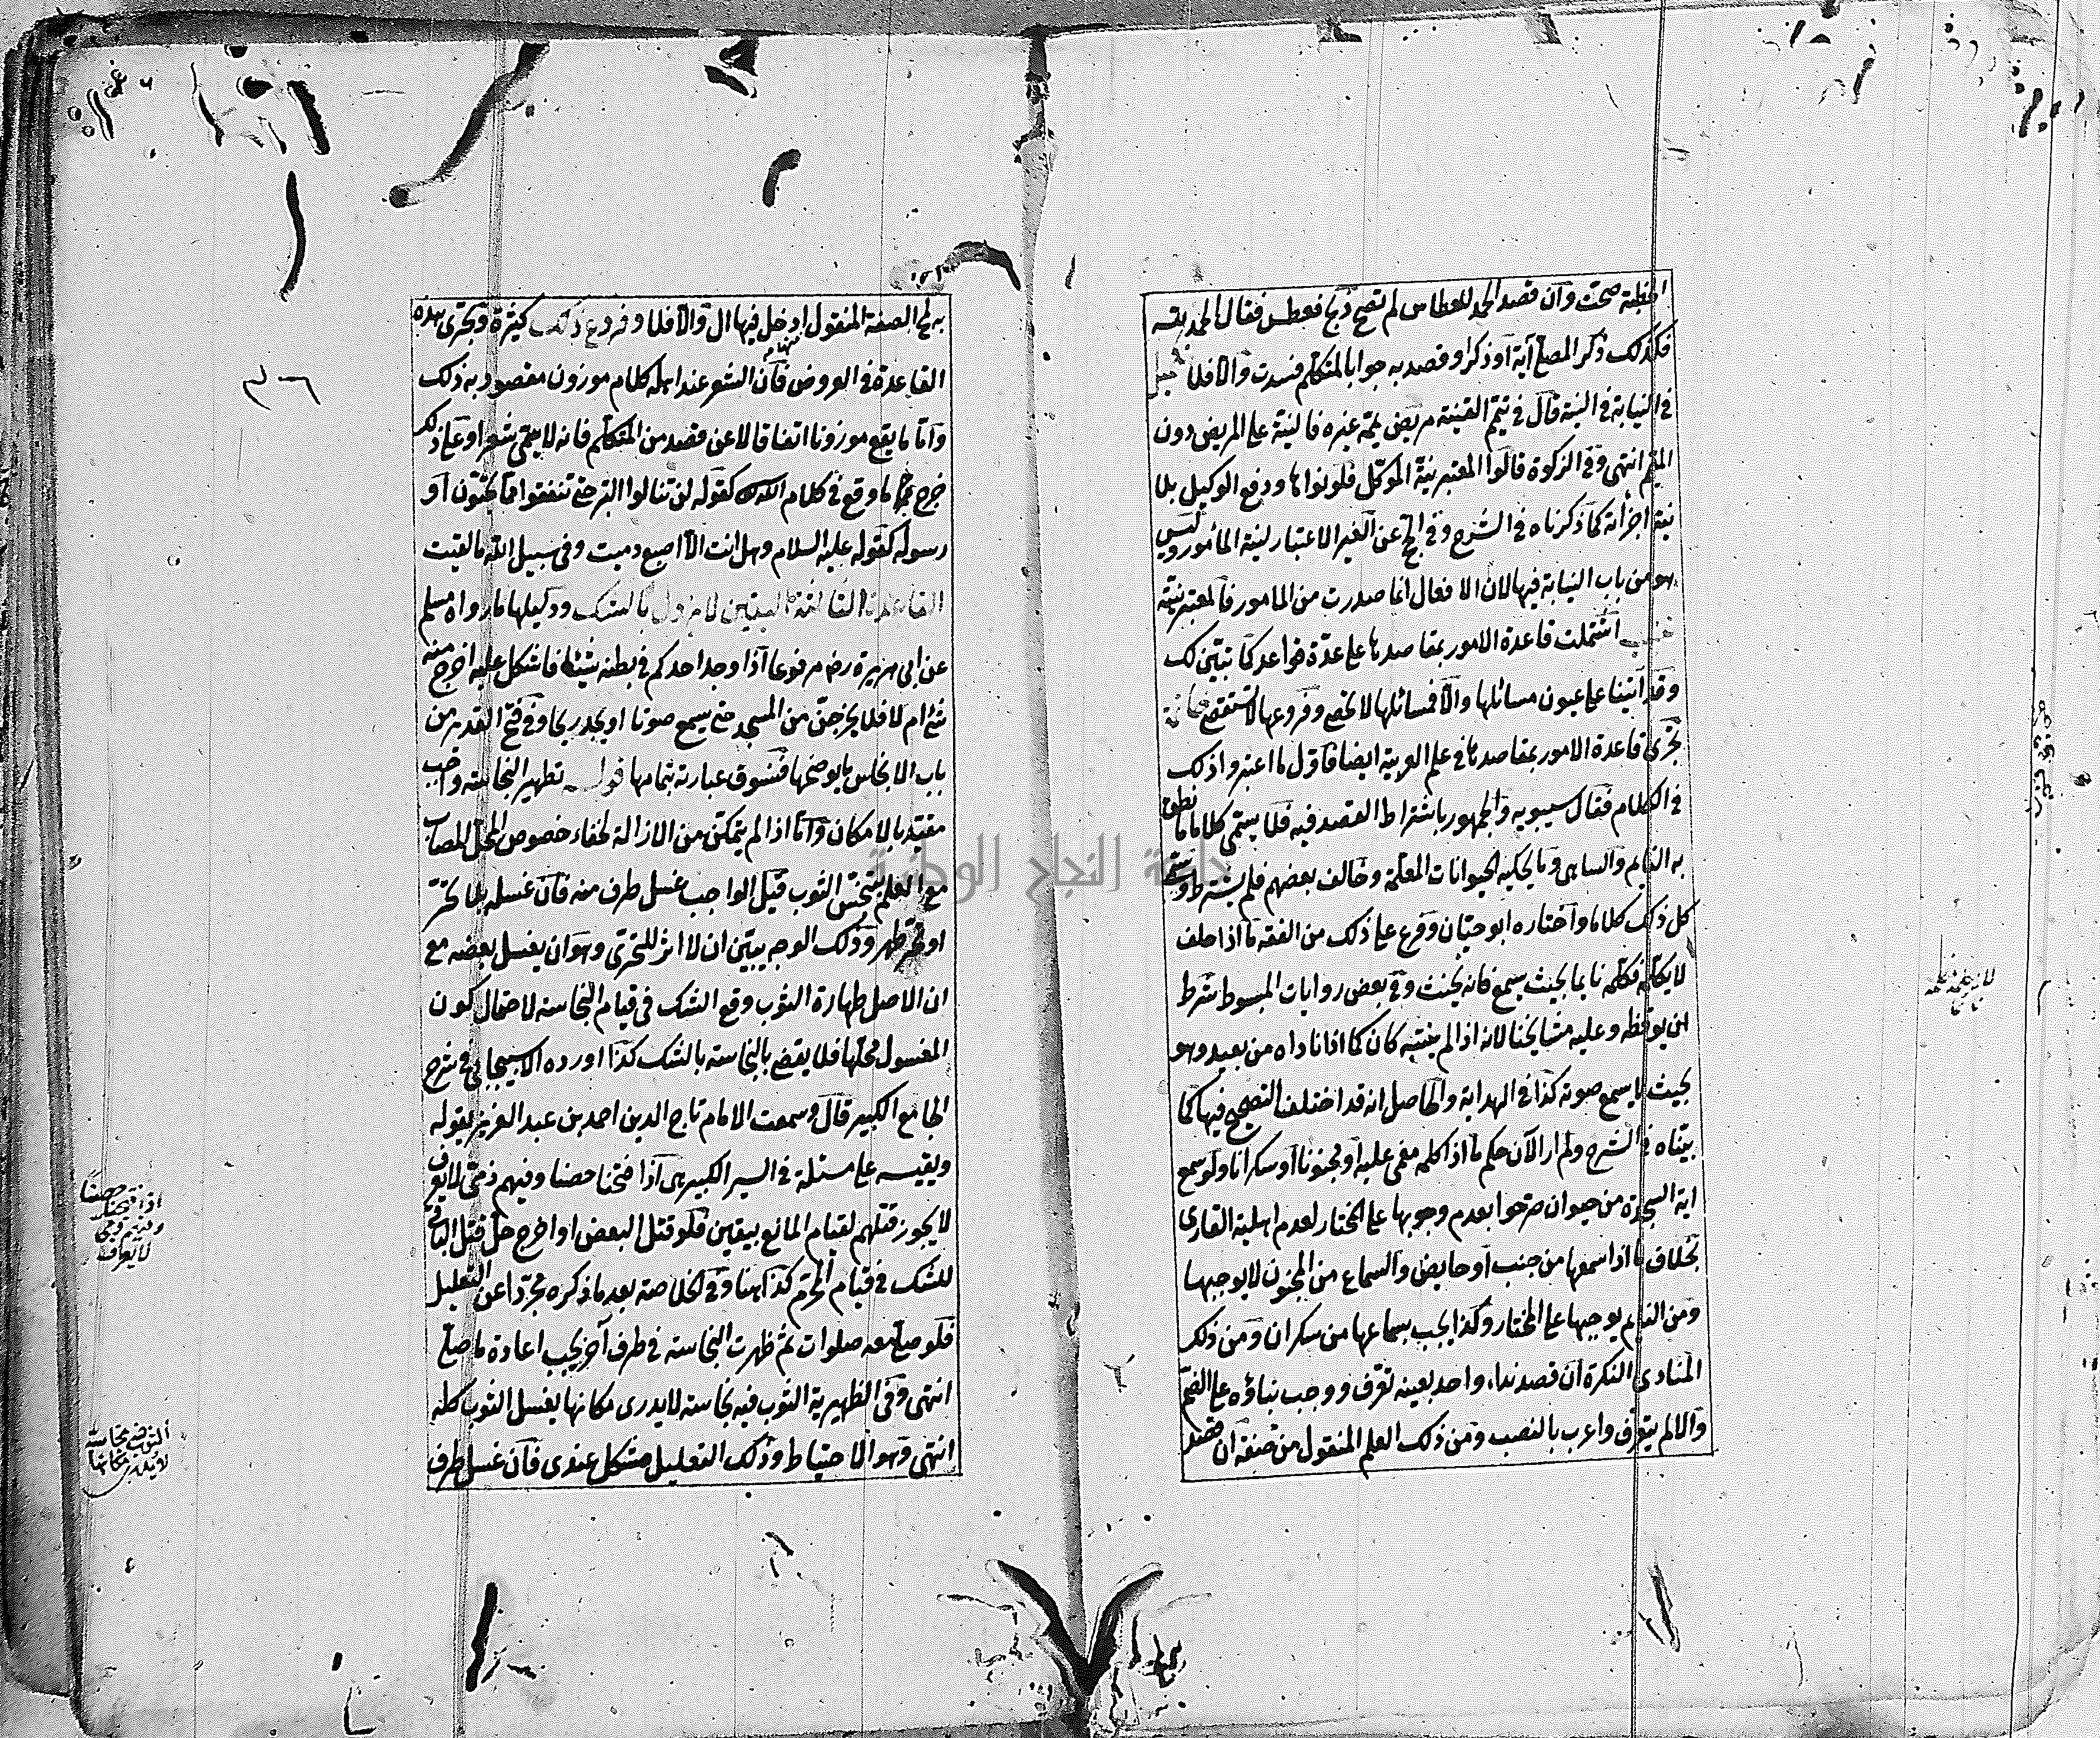 الخطبة صحت وان قصد الحمد للعطاس لم تصح ذبح فعطس فقال الحمد لله
فكذلك ذكر المصلي آية او ذكرا وقصد به جوابا لمتكلم فسدت والا فلا تكميل
في النيابة في النية قال في تيمم القنية مريض يممه غيره فالنية على المريض دون
الميمم انتهى وفي الزكوة قالوا المعتبر نية الموكل فلو نواها ودفع الوكيل بلا
نية اجزأته كما ذكرناه في الشرح وفي الحج عن الغير الاعتبار لنية المأمور وليس
هو من باب النيابة فيها لان الافعال انما صدرت من المامور فالمعتبر نيته
اشتملت قاعدة الامور بمقاصدها على عدة قواعد كما تبين لك
وقد اتينا على عيون مسائلها والا فمسائلها لا تحصى وفروعها لا تستقصى خاتمة
تجرى قاعدة الامور بمقاصدها في علم العربية ايضا فاول ما اعتبروا ذلك
في الكلام فقال سيبويه والجمهور باشتراط القصد فيه فلا يسمى كلاما ما نطق
به النايم والساهى وما يحكيه الحيوانات المعلمة وخالف بعضهم فلم يشترط وسمى
كل ذلك كلاما واختاره ابو حيان وفرع على ذلك من الفقه ما اذا حلف
لا يكلمه فكلمه نايما بحيث يسمع فانه يحنث وفي بعض روايات المبسوط شرط
ان يوقظه وعليه مشايخنا لانه اذا لم يتنبه كان كما اذا ناداه من بعيد وهو
بحيث لا يسمع صوته كذا في الهداية والحاصل انه قد اختلف التصحيح فيها كما
بيناه في الشرح ولم ار الآن حكم ما اذا كلمه مغمى عليه او مجنونا او سكرانا ولو سمع
اية السجدة من حيوان صرحوا بعدم وجوبها على المختار لعدم اهلية القارى
بخلاف ما اذا سمعها من جنب او حايض والسماع من المجنون لا يوجبها
ومن النايم يوجبها على المختار وكذا يجب بسماعها من سكران ومن ذلك
المنادى النكرة ان قصد نداء واحد بعينه تعرف ووجب بناؤه على الضم
والا لم يتعرف واعرب بالنصب ومن ذلك العلم المنقول من صفة ان قصد
لا يكلمه فكلمه
نايما
به لمح الصفة المنقول ادخل فيها ال والا فلا وفروع ذلك كثيرة وتجرى هذه
القاعدة في العروض فان الشعر عند اهله كلام موزون مقصود به ذلك
واما ما يقع موزونا اتفاقا لا عن قصد من المتكلم فانه لا يسمى شعرا وعلى ذلك
خرج ما وقع في كلام الله كقوله لن تنالوا البر حتى تنفقوا مما تحبون او
رسوله كقوله عليه السلام وهل انت الا اصبع دميت وفي سبيل الله ما لقيت
القاعدة الثالثة اليقين لا يزول بالشك ودليلها ما رواه مسلم
عن ابى هريرة رض مرفوعا اذا وجد احدكم في بطنه شيئا فاشكل عليه اخرج منه
شئ ام لا فلا يخرجن من المسجد حتى يسمع صوتا او يجد ريحا وفي فتح القدير من
باب الانجاس ما يوضحها فنسوق عبارته بتمامها قوله تطهير النجاسة واجب
مقيد بالامكان واما اذا لم يتمكن من الازالة لخفاء خصوص المحل المصاب
مع العلم بتنجس الثوب قيل الواجب غسل طرف منه فان غسله بلا تحر
او بتحر طهر وذلك الوجه يبين ان لا اثر للتحرى وهو ان يغسل بعضه مع
ان الاصل طهارة الثوب وقع الشك في قيام النجاسة لاحتمال كون
المغسول محلها فلا يقضى بالنجاسة بالشك كذا اورده الاسبيجابى في شرح
الجامع الكبير قال وسمعت الامام تاج الدين احمد بن عبد العزيز يقوله
ويقيسه على مسئلة في السير الكبير هى اذا فتحنا حصنا وفيهم ذمى لا يعرف
لا يجوز قتلهم لقيام المانع بيقين فلو قتل البعض او اخرج حل قتل الباقى
للشك في قيام المحرم كذا هنا وفي الخلاصة بعد ما ذكره مجردا عن التعليل
فلو صلى معه صلوات ثم ظهرت النجاسة في طرف آخر يجب اعادة ما صلى
انتهى وفي الظهيرية الثوب فيه نجاسة لا يدرى مكانها يغسل الثوب كله
انتهى وهو الاحتياط وذلك التعليل مشكل عندى فان غسل طرف
اذا فتحنا حصنا
وفيهم ذمى
لا يعرف
الثوب فيه نجاسة
لا يدرى مكانها
جامعة النجاح الوطنية